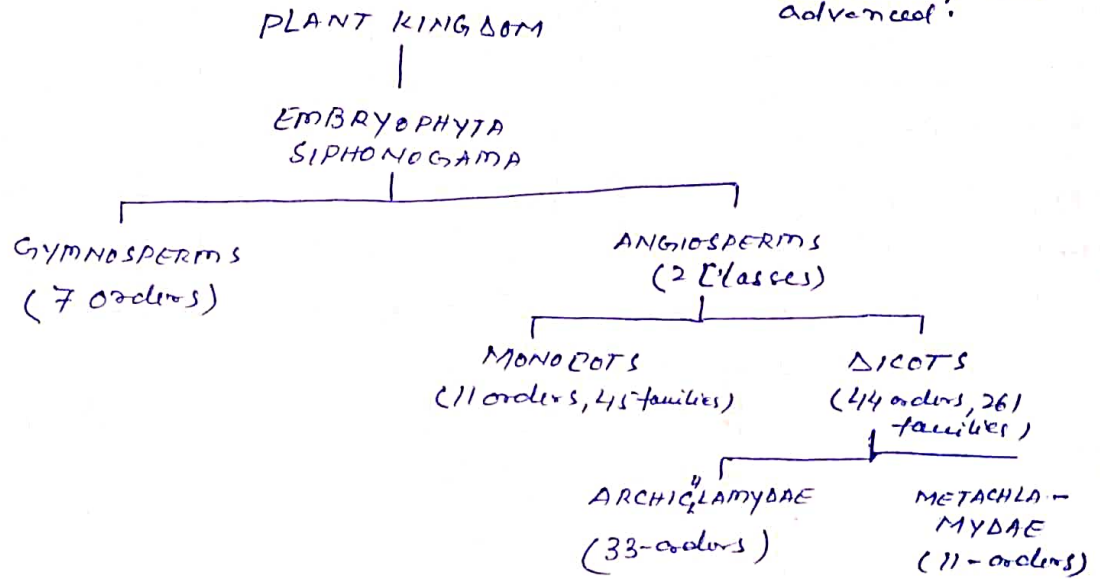 advanced.
PLANT KINGDOM
EMBRYOPHYTA
SIPHONOGAMA
GYMNOSPERMS
(7 orders)
ANGIOSPERMS
(2 Classes)
MONOCOTS
(11 orders, 45 families)
DICOTS
(44 orders, 261
families)
ARCHICHLAMYDAE
(33-orders)
METACHLA-
MYDAE
(11-orders)